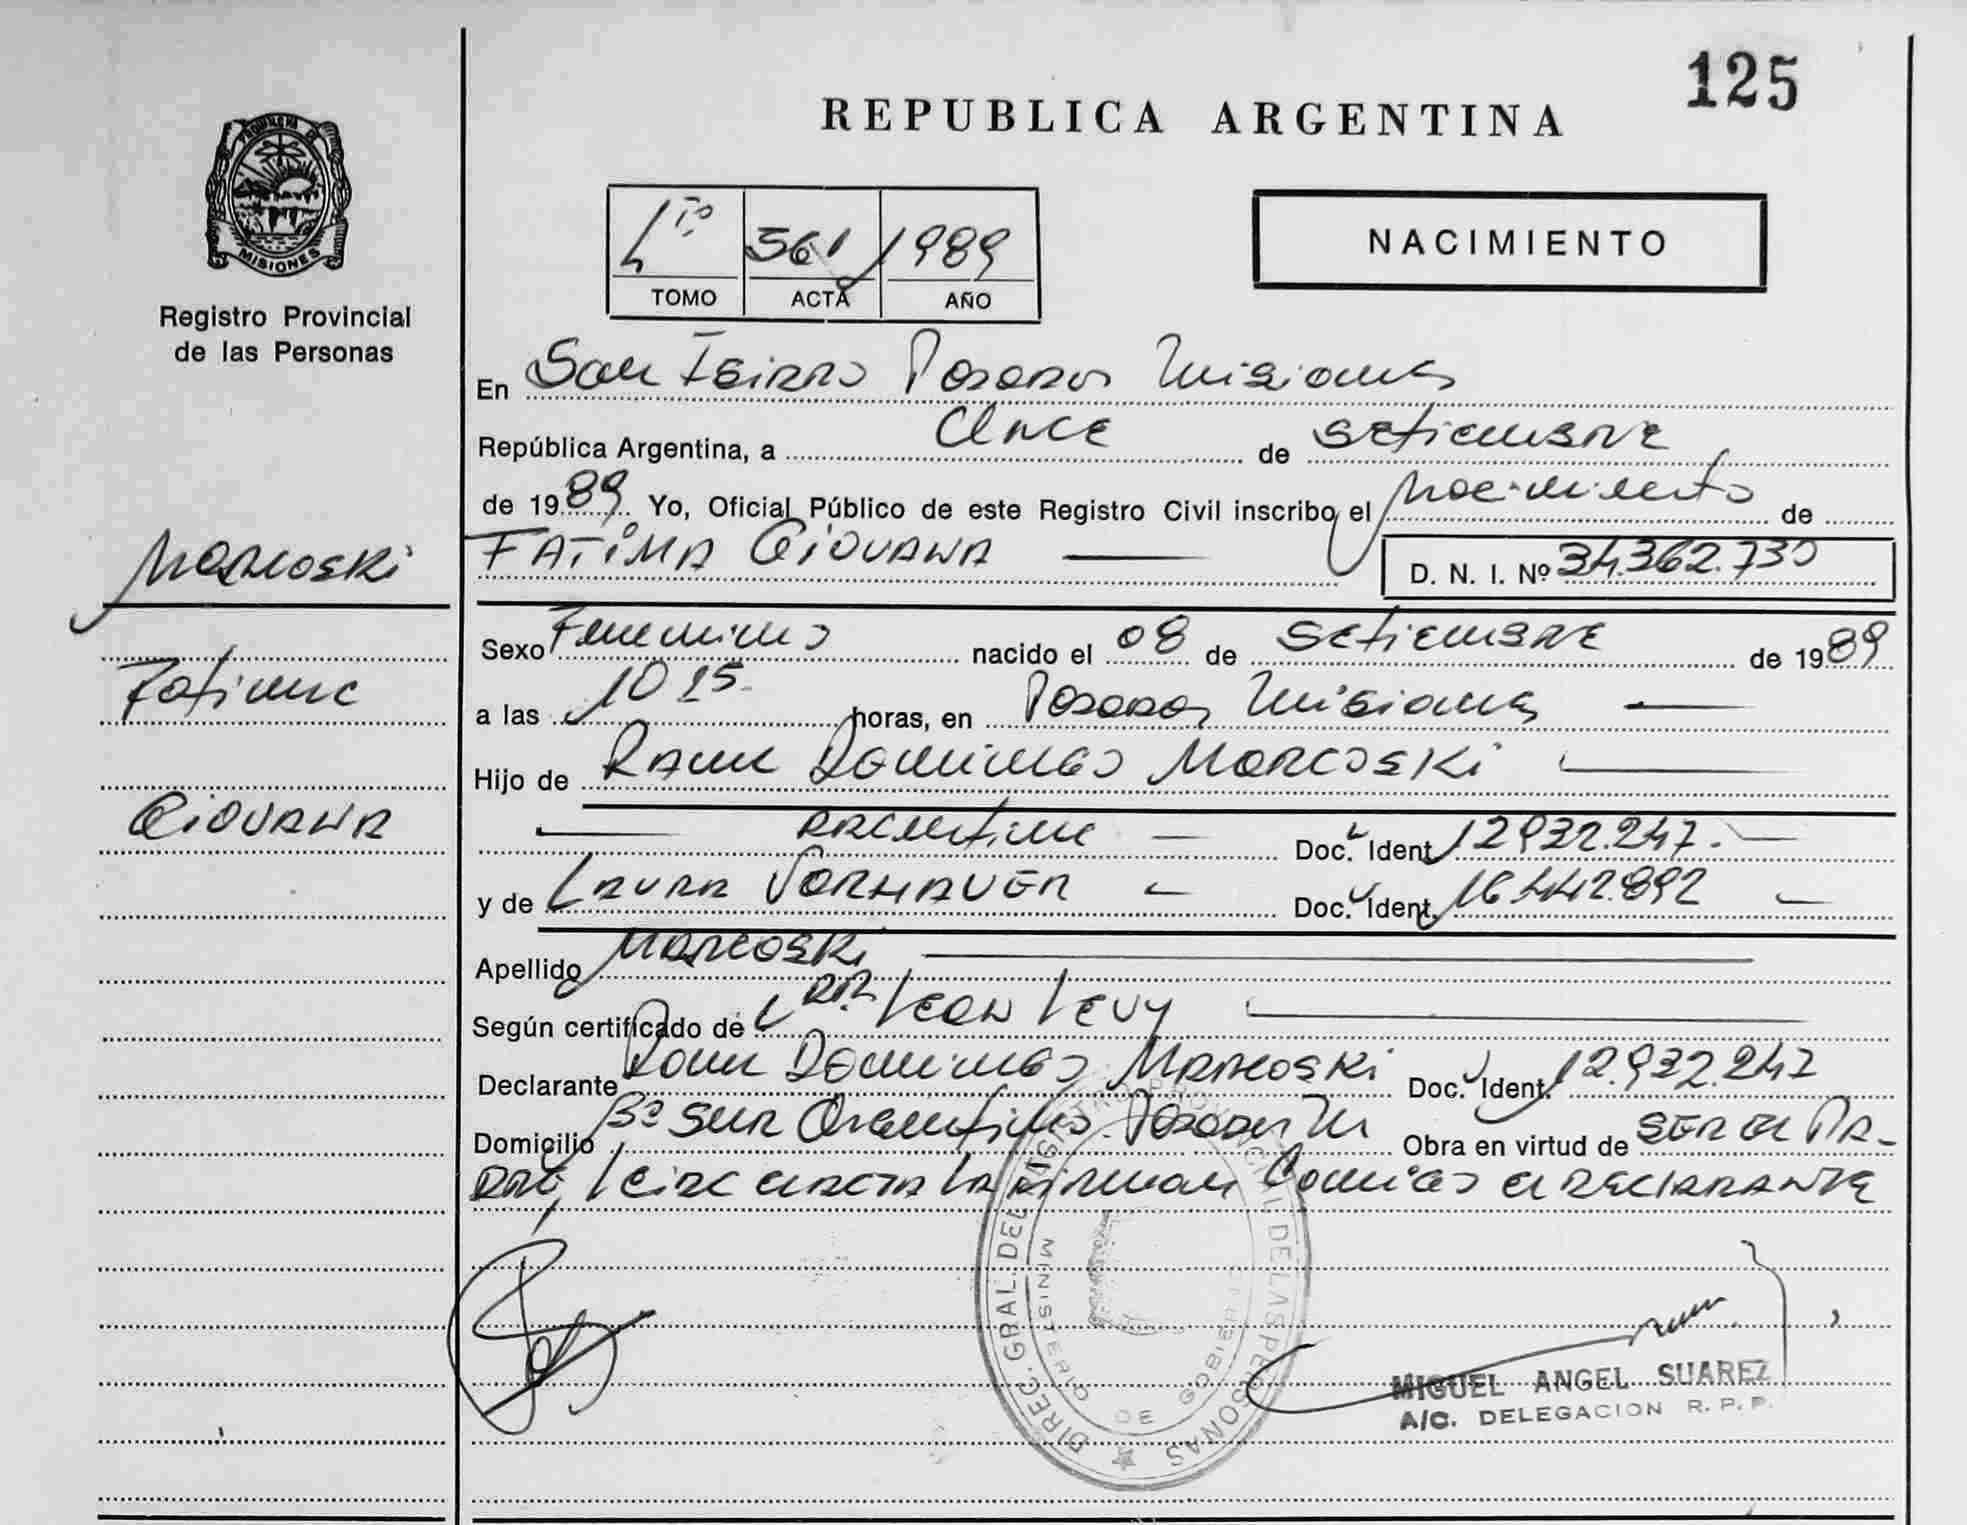 125
REPUBLICA ARGENTINA
PROVINCIA DE
MISIONES
Registro Provincial
de las Personas
NACIMIENTO
561 1989
TOMO ACTA AÑO
En San Isidro Posadas Misiones
República Argentina, a Once de Setiembre
de 1989 Yo, Oficial Público de este Registro Civil inscribo el Nacimiento de
Marcoski
FATIMA GIOVANA D. N. I. Nº 34.362.730
Sexo Femenino nacido el 08 de Setiembre de 1989
Fatima
a las 10 15 horas, en Posadas Misiones
Hijo de Domingo Marcoski
GIOVANA
Argentino Doc. Ident. 12.932.247.
y de LAURA Doc. Ident. 16.442.892
Apellido Marcoski
Según certificado de Dra. Leon Levy
Declarante Domingo Marcoski Doc. Ident. 12.932.247
Domicilio Bº Sur Argentino. Posadas M Obra en virtud de SER EL PA-
DRE, Leida el acta La firman Conmigo el DECLARANTE
DIREC. GRAL. DEL REGISTRO PROVINCIAL DE LAS PERSONAS
MINISTERIO DE GOBIERNO
MIGUEL ANGEL SUAREZ
A/C. DELEGACION R. P. P.